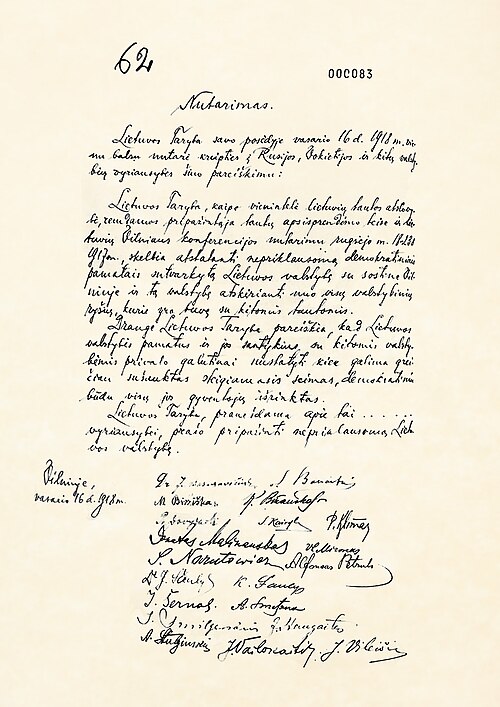 62
000083
Nutarimas.
Lietuvos Taryba savo posėdyje vasario 16 d. 1918 m. vie-
nu balsu nutarė kreipties į Rusijos, Vokietijos ir kitų valsty-
bių vyriausybes šiuo pareiškimu:
Lietuvos Taryba, kaipo vienintelė lietuvių tautos atstovy-
bė, remdamos pripažintąja tautų apsisprendimo teise ir lie-
tuvių Vilniaus konferencijos nutarimu rugsėjo m. 18-23 d.
1917 m., skelbia atstatanti nepriklausomą demokratiniais
pamatais sutvarkytą Lietuvos valstybę su sostine Vil-
niuje ir tą valstybę atskirianti nuo visų valstybinių
ryšių, kurie yra buvę su kitomis tautomis.
Drauge Lietuvos Taryba pareiškia, kad Lietuvos
valstybės pamatus ir jos santykius su kitomis valsty-
bėmis privalo galutinai nustatyti kiek galima grei-
čiau sušauktas steigiamasis seimas, demokratiniu
būdu visų jos gyventojų išrinktas.
Lietuvos Taryba, pranešdama apie tai . . . . . .
vyriausybei, prašo pripažinti nepriklausomą Lietu-
vos valstybę.
Vilniuje,
vasario 16 d. 1918 m.
Dr. J. Basanavičius S. Banaitis
M. Biržiška K. Bizauskas
Pr. Dovydaitis S. Kairys P. Klimas
Donatas Malinauskas Vl. Mironas
S. Narutowicz Alfonsas Petrulis
Dr J. Šaulys K. Šaulys
J. Šernas A. Smetona
J. Smilgevičius J. Staugaitis
A. Stulginskis J. Vailokaitis J. Vileišis